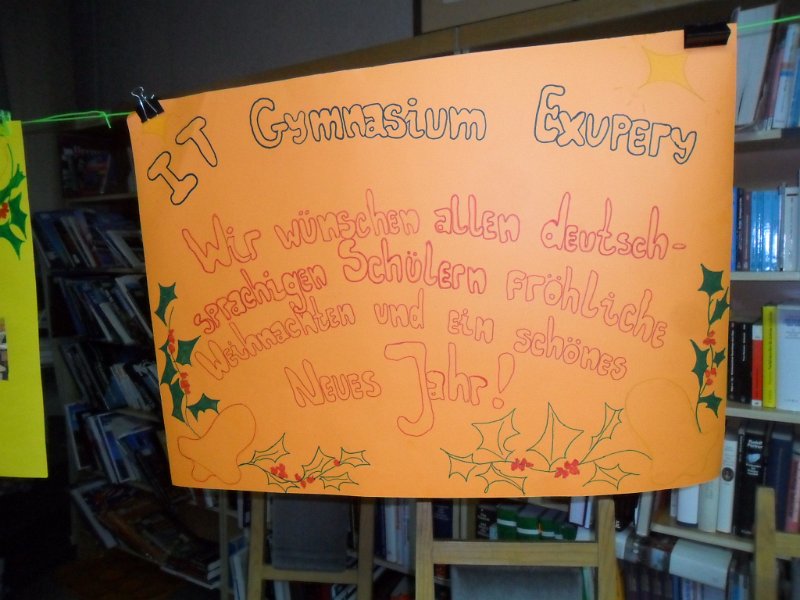 IT Gymnasium Exupery
Wir wünschen allen deutsch-
sprachigen Schülern fröhliche
Weihnachten und ein schönes
Neues Jahr!